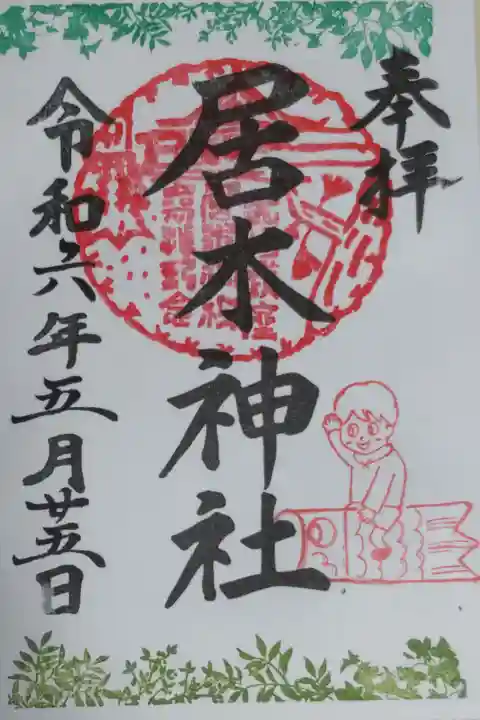 奉拝
居木神社
令和六年五月廿五日